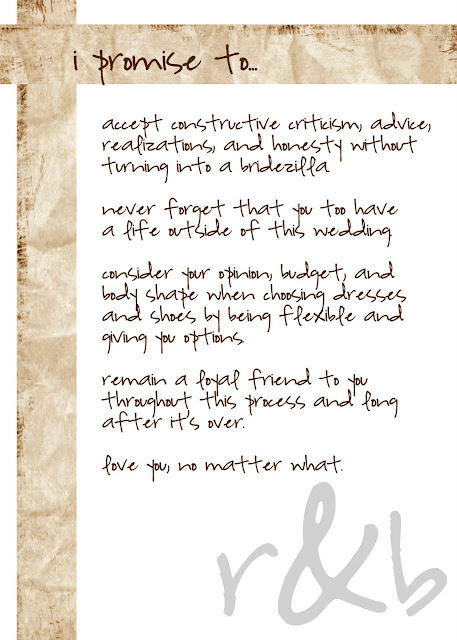 i promise to...
accept constructive criticism, advice,
realizations, and honesty without
turning into a bridezilla
never forget that you too have
a life outside of this wedding
consider your opinion, budget, and
body shape when choosing dresses
and shoes by being flexible and
giving you options.
remain a loyal friend to you
throughout this process and long
after it's over.
love you, no matter what.
r&b